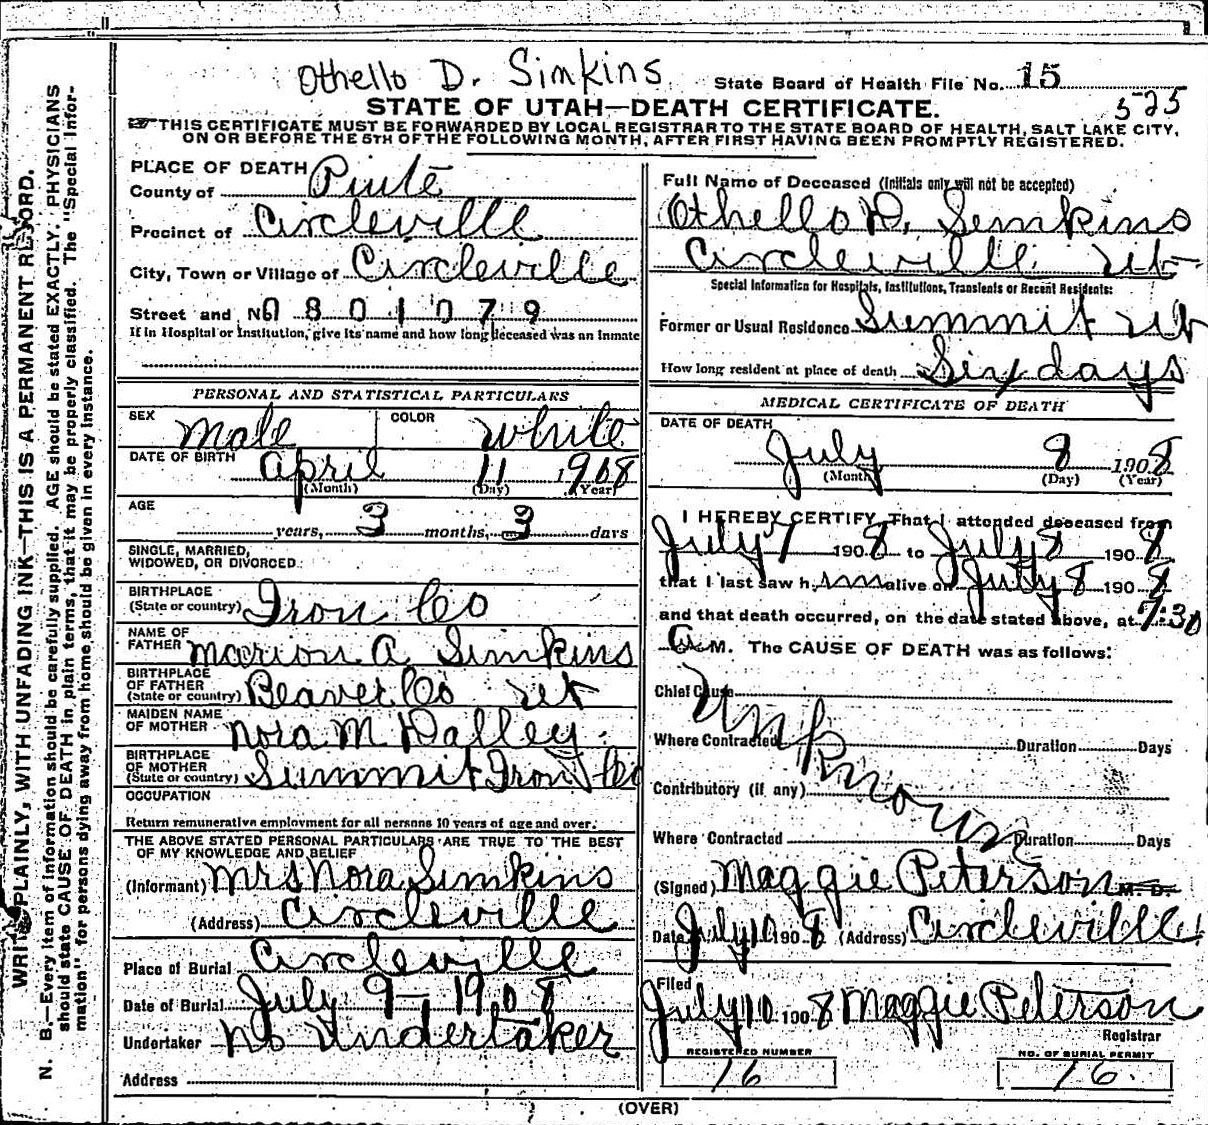 Othello D. Simkins
State Board of Health File No. 15
525
STATE OF UTAH—DEATH CERTIFICATE.
THIS CERTIFICATE MUST BE FORWARDED BY LOCAL REGISTRAR TO THE STATE BOARD OF HEALTH, SALT LAKE CITY,
ON OR BEFORE THE 5TH OF THE FOLLOWING MONTH, AFTER FIRST HAVING BEEN PROMPTLY REGISTERED.
WRITE PLAINLY, WITH UNFADING INK—THIS IS A PERMANENT RECORD.
N. B.—Every item of information should be carefully supplied. AGE should be stated EXACTLY. PHYSICIANS
should state CAUSE OF DEATH in plain terms, that it may be properly classified. The "Special Infor-
mation" for persons dying away from home should be given in every instance.
PLACE OF DEATH
County of Piute
Precinct of Circleville
City, Town or Village of Circleville
Street and No. 0801079
If in Hospital or Institution, give its name and how long deceased was an inmate
PERSONAL AND STATISTICAL PARTICULARS
SEX Male COLOR White
DATE OF BIRTH April 11 1908
(Month) (Day) (Year)
AGE
years, 3 months, 3 days
SINGLE, MARRIED,
WIDOWED, OR DIVORCED
BIRTHPLACE
(State or country) Iron Co
NAME OF
FATHER Marion A. Simkins
BIRTHPLACE
OF FATHER
(State or country) Beaver Co Ut
MAIDEN NAME
OF MOTHER Nora M Dalley
BIRTHPLACE
OF MOTHER
(State or country) Summit Iron Co
OCCUPATION
Return remunerative employment for all persons 10 years of age and over.
THE ABOVE STATED PERSONAL PARTICULARS ARE TRUE TO THE BEST
OF MY KNOWLEDGE AND BELIEF
(Informant) Mrs Nora Simkins
(Address) Circleville
Place of Burial Circleville
Date of Burial July 9— 1908
Undertaker No Undertaker
Address
Full Name of Deceased (Initials only will not be accepted)
Othello D. Simkins
Circleville Ut
Special Information for Hospitals, Institutions, Transients or Recent Residents:
Former or Usual Residence Summit Ut
How long resident at place of death Six days
MEDICAL CERTIFICATE OF DEATH
DATE OF DEATH
July 8 1908
(Month) (Day) (Year)
I HEREBY CERTIFY, That I attended deceased from
July 7 1908 to July 8 1908
that I last saw h alive on July 8 1908
and that death occurred, on the date stated above, at 7:30
A. M. The CAUSE OF DEATH was as follows:
Chief Cause
Unknown
Where Contracted Duration Days
Contributory (if any)
Where Contracted Duration Days
(Signed) Maggie Peterson M. D.
Date July 10 1908 (Address) Circleville
Filed
July 10 1908 Maggie Peterson
Registrar
REGISTERED NUMBER
16
NO. OF BURIAL PERMIT
16.
(OVER)